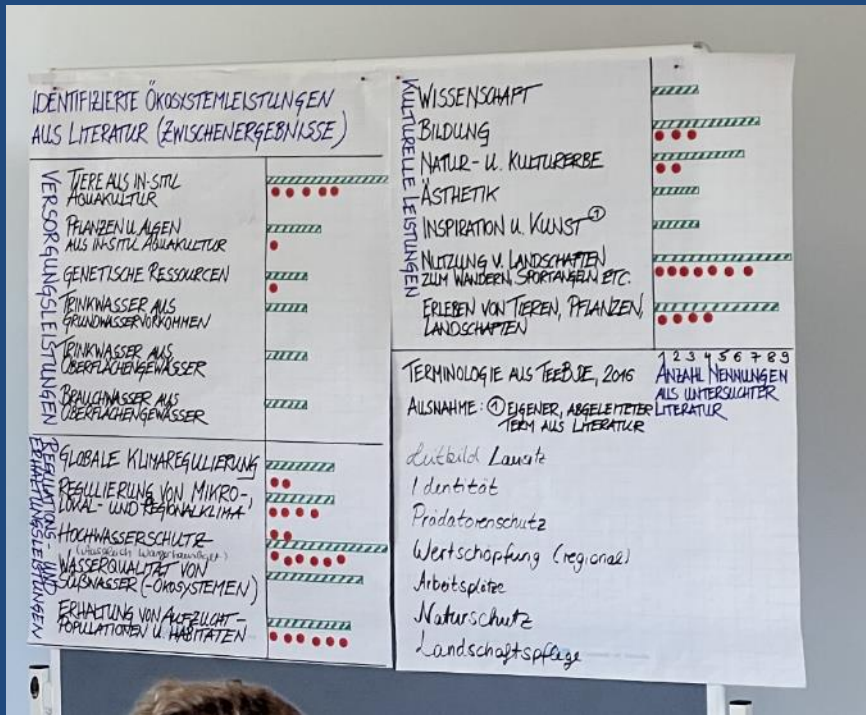 IDENTIFIZIERTE ÖKOSYSTEMLEISTUNGEN
AUS LITERATUR (ZWISCHENERGEBNISSE)
VERSORGUNGSLEISTUNGEN
TIERE AUS IN-SITU
AQUAKULTUR
PFLANZEN U. ALGEN
AUS IN-SITU AQUAKULTUR
GENETISCHE RESSOURCEN
TRINKWASSER AUS
GRUNDWASSERVORKOMMEN
TRINKWASSER AUS
OBERFLÄCHENGEWÄSSER
BRAUCHWASSER AUS
OBERFLÄCHENGEWÄSSER
REGULATIONS- UND
ERHALTUNGSLEISTUNGEN
GLOBALE KLIMAREGULIERUNG
REGULIERUNG VON MIKRO-,
LOKAL- UND REGIONALKLIMA
HOCHWASSERSCHUTZ
WASSERQUALITÄT VON
SÜßWASSER (-ÖKOSYSTEMEN)
ERHALTUNG VON AUFZUCHT-
POPULATIONEN U. HABITATEN
KULTURELLE LEISTUNGEN
WISSENSCHAFT
BILDUNG
NATUR- U. KULTURERBE
ÄSTHETIK
INSPIRATION U. KUNST ①
NUTZUNG V. LANDSCHAFTEN
ZUM WANDERN, SPORTANGELN ETC.
ERLEBEN VON TIEREN, PFLANZEN,
LANDSCHAFTEN
1 2 3 4 5 6 7 8 9
ANZAHL NENNUNGEN
AUS UNTERSUCHTER
LITERATUR
TERMINOLOGIE AUS TEEB DE, 2016
AUSNAHME: ① EIGENER, ABGELEITETER
TERM AUS LITERATUR
Leitbild Lausitz
Identität
Prädatorenschutz
Wertschöpfung (regional)
Arbeitsplätze
Naturschutz
Landschaftspflege